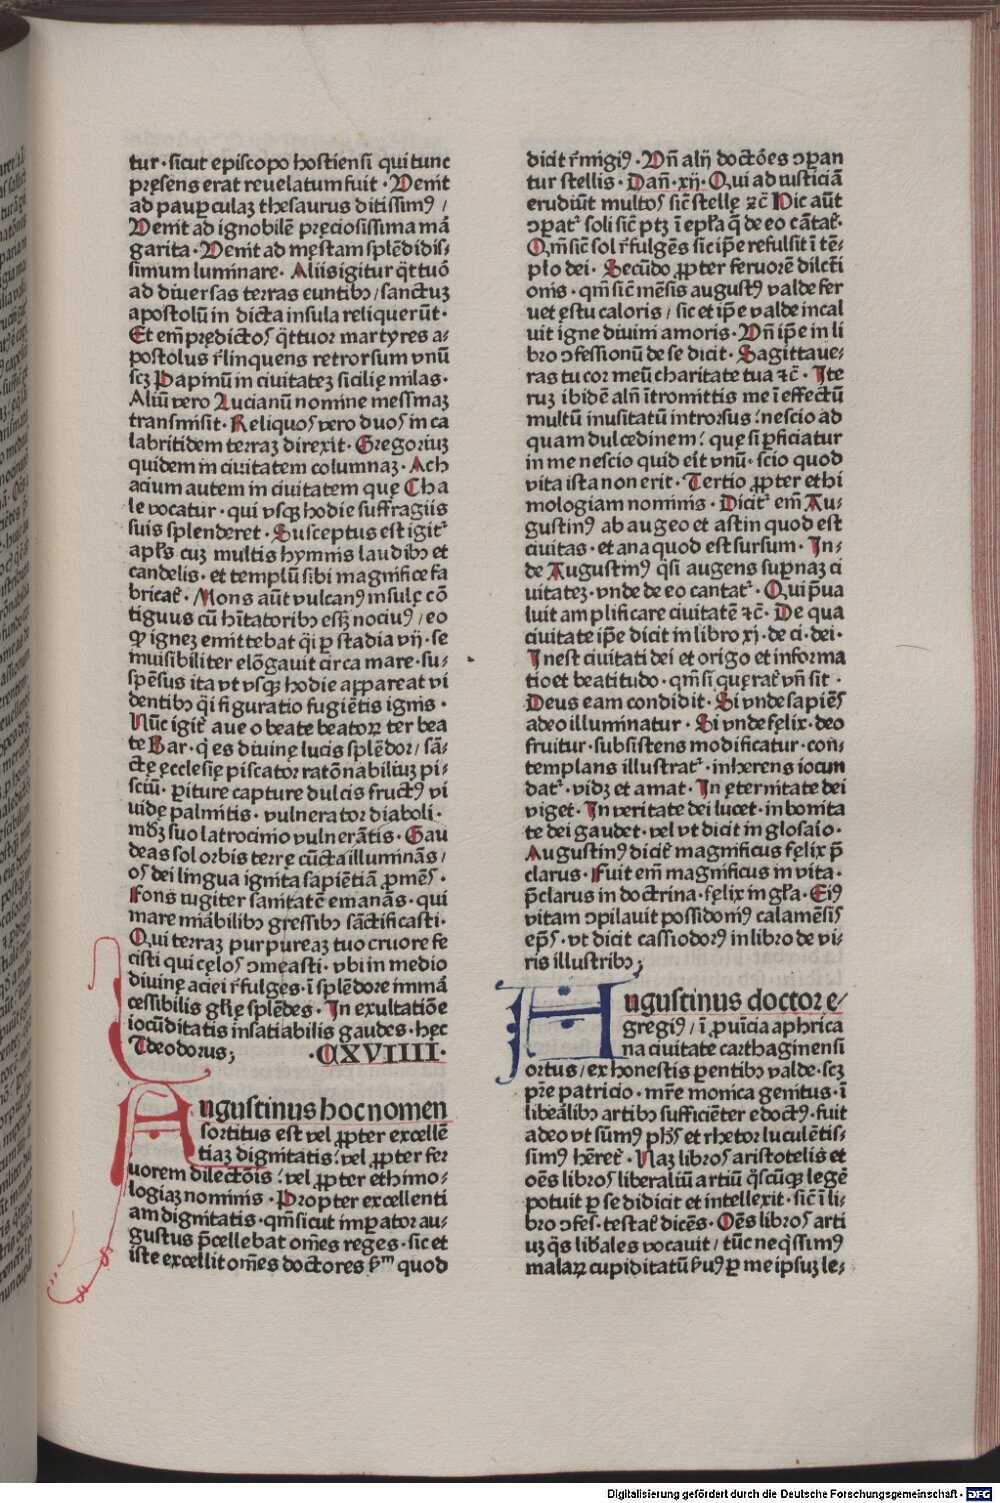 tur · sicut episcopo hostiensi qui tunc
pręsens erat reuelatum fuit · Uenit
ad pauꝑculaꝫ thesaurus ditissimꝰ /
Uenit ad ignobilē pręciosissima mā
garita · Uenit ad męstam splēdidis⸗
simum luminare · Aliis igitur q̄ttuō
ad diuersas terras euntibꝫ / sanctuꝫ
apostolū in dicta insula reliquerūt ·
Et em̄ prędictos q̄ttuor martyres a⸗
postolus r̄linquens retrorsum vnū
scꝫ Papinū in ciuitateꝫ sicilię milas ·
Aliū vero Lucianū nomine messinaꝫ
transmisit · Reliquos vero duos in ca
labritidem terraꝫ direxit · Gregoriuꝫ
quidem in ciuitatem columnaꝫ · Ach
acium autem in ciuitatem quę Cha
le vocatur · qui vsqꝫ hodie suffragiis
suis splenderet · Susceptus est igit᷑
apl̄s cuꝫ multis hymnis laudibꝫ et
candelis · et templū sibi magnifice fa
bricat᷑ · Mons aūt vulcanꝰ insulę cō
tiguus cū hītatoribꝫ esꝫ nociuꝰ / eo
ꝙ igneꝫ emittebat q̄i ꝑ stadia vij · se
inuisibiliter elōgauit circa mare · su⸗
spēsus ita vt vsqꝫ hodie appareat vi
dentibꝫ q̄i figuratio fugiētis ignis ·
Nūc igit᷑ aue o beate beatoꝝ ter bea
te Bar · q̄ es diuinę lucis splēdor / sā⸗
ctę ęcclesię piscator ratōnabiliuꝫ pi⸗
sciū · ꝑiture capture dulcis fructꝰ vi
uidę palmitis · vulnerator diaboli ·
mōꝫ suo latrocinio vulnerātis · Gau
deas sol orbis terrę cūcta illuminās /
os dei lingua ignita sapiētiā ꝓmēs ·
Fons iugiter sanitatē emanās · qui
mare mīabilibꝫ gressibꝫ sāctificasti ·
Qui terraꝫ purpureaꝫ tuo cruore fe
cisti qui cęlos ꝯmeasti · vbi in medio
diuinę aciei r̄fulges · ī splēdore immā
cessibilis gl̄ię splēdes · In exultatiōe
iocūditatis insatiabilis gaudes · hęc
Tdeodorus; · CXVIIII ·
Augustinus hoc nomen
sortitus est vel ꝓpter excellē
tiaꝫ dignitatis · vel ꝓpter fer
uorem dilectōis · vel ꝓpter ethimo⸗
logiaꝫ nominis · Propter excellenti
am dignitatis · qm̄ sicut imꝑator au⸗
gustus p̄cellebat om̄es reges · sic et
iste excellit om̄es doctores ẜm quod
dicit r̄migiꝰ · Un̄ alij doctōes ꝯꝑan
tur stellis · Dan̄ · xij · Qui ad iusticiā
erudiūt multos sic̄ stellę ⁊c̄ Hic aūt
ꝯꝑat᷑ soli sic̄ ptꝫ ī epl̄a q̄ de eo cātat᷑ ·
Qm̄ sic̄ sol r̄fulgēs sic ip̄e refulsit ī tē⸗
plo dei · Secūdo ꝓpter feruorē dilcti
onis · qm̄ sic̄ mēsis augustꝰ valde fer
uet ęstu caloris / sic et ip̄e valde incal
uit igne diuini amoris · Un̄ ip̄e in li
bro ꝯfessionū de se dicit · Sagittaue⸗
ras tu cor meū charitate tua ⁊c̄ · Ite
ruꝫ ibidē aln̄ ītromittis me ī effectū
multū inusitatū introrsus · nescio ad
quam dulcedinem · quę si ꝑficiatur
in me nescio quid eīt vnū · scio quod
vita ista non erit · Tertio ꝓpter ethi
mologiam nominis · Dicit᷑ em̄ Au⸗
gustinꝰ ab augeo et astin quod est
ciuitas · et ana quod est sursum · In⸗
de Augustinꝰ q̄si augens suꝑnaꝫ ci
uitateꝫ · vnde de eo cantat᷑ · Qui p̄ua
luit amplificare ciuitatē ⁊c̄ · De qua
ciuitate ip̄e dicit in libro xj · de ci · dei ·
Inest ciuitati dei et origo et informa
tio et beatitudo · qm̄ si quęrat᷑ vn̄ sit ·
Deus eam condidit · Si vnde sapiēs
adeo illuminatur · Si vnde fęlix · deo
fruitur · subsistens modificatur · con⸗
templans illustrat᷑ · inherens iocun
dat᷑ · vidꝫ et amat · In ęternitate dei
viget · In veritate dei lucet · in bonita
te dei gaudet · vel vt dicit in glosaio ·
Augustinꝰ dicit᷑ magnificus fęlix p̄
clarus · Fuit em̄ magnificus in vita ·
p̄clarus in doctrina · fęlix in gl̄a · Eiꝰ
vitam ꝯpilauit possidoniꝰ calamēsis
ep̄s · vt dicit cassiodorꝰ in libro de vi⸗
ris illustribꝫ;
Augustinus doctor e/
gregiꝰ / ī ꝓuīcia aphrica
na ciuitate carthaginensi
ortus / ex honestis ꝑentibꝫ valde · scꝫ
pr̄e patricio · mr̄e monica genitus · ī
libeālibꝫ artibꝫ sufficiēter edoctꝰ · fuit
adeo vt sūmꝰ ph̄s et rhetor luculētis⸗
simꝰ hēret᷑ · Naꝫ libros aristotelis et
oēs libros liberaliū artiū q̄scūqꝫ legē
potuit ꝑ se didicit et intellexit · sic̄ ī li⸗
bro ꝯfes · testat᷑ dicēs · Oēs libros arti
uꝫ q̄s lib̄ales vocauit / tūc neq̄ssimꝰ
malaꝝ cupiditatū ẜuꝰ ꝑ me ipsuꝫ le⸗
Digitalisierung gefördert durch die Deutsche Forschungsgemeinschaft - DFG